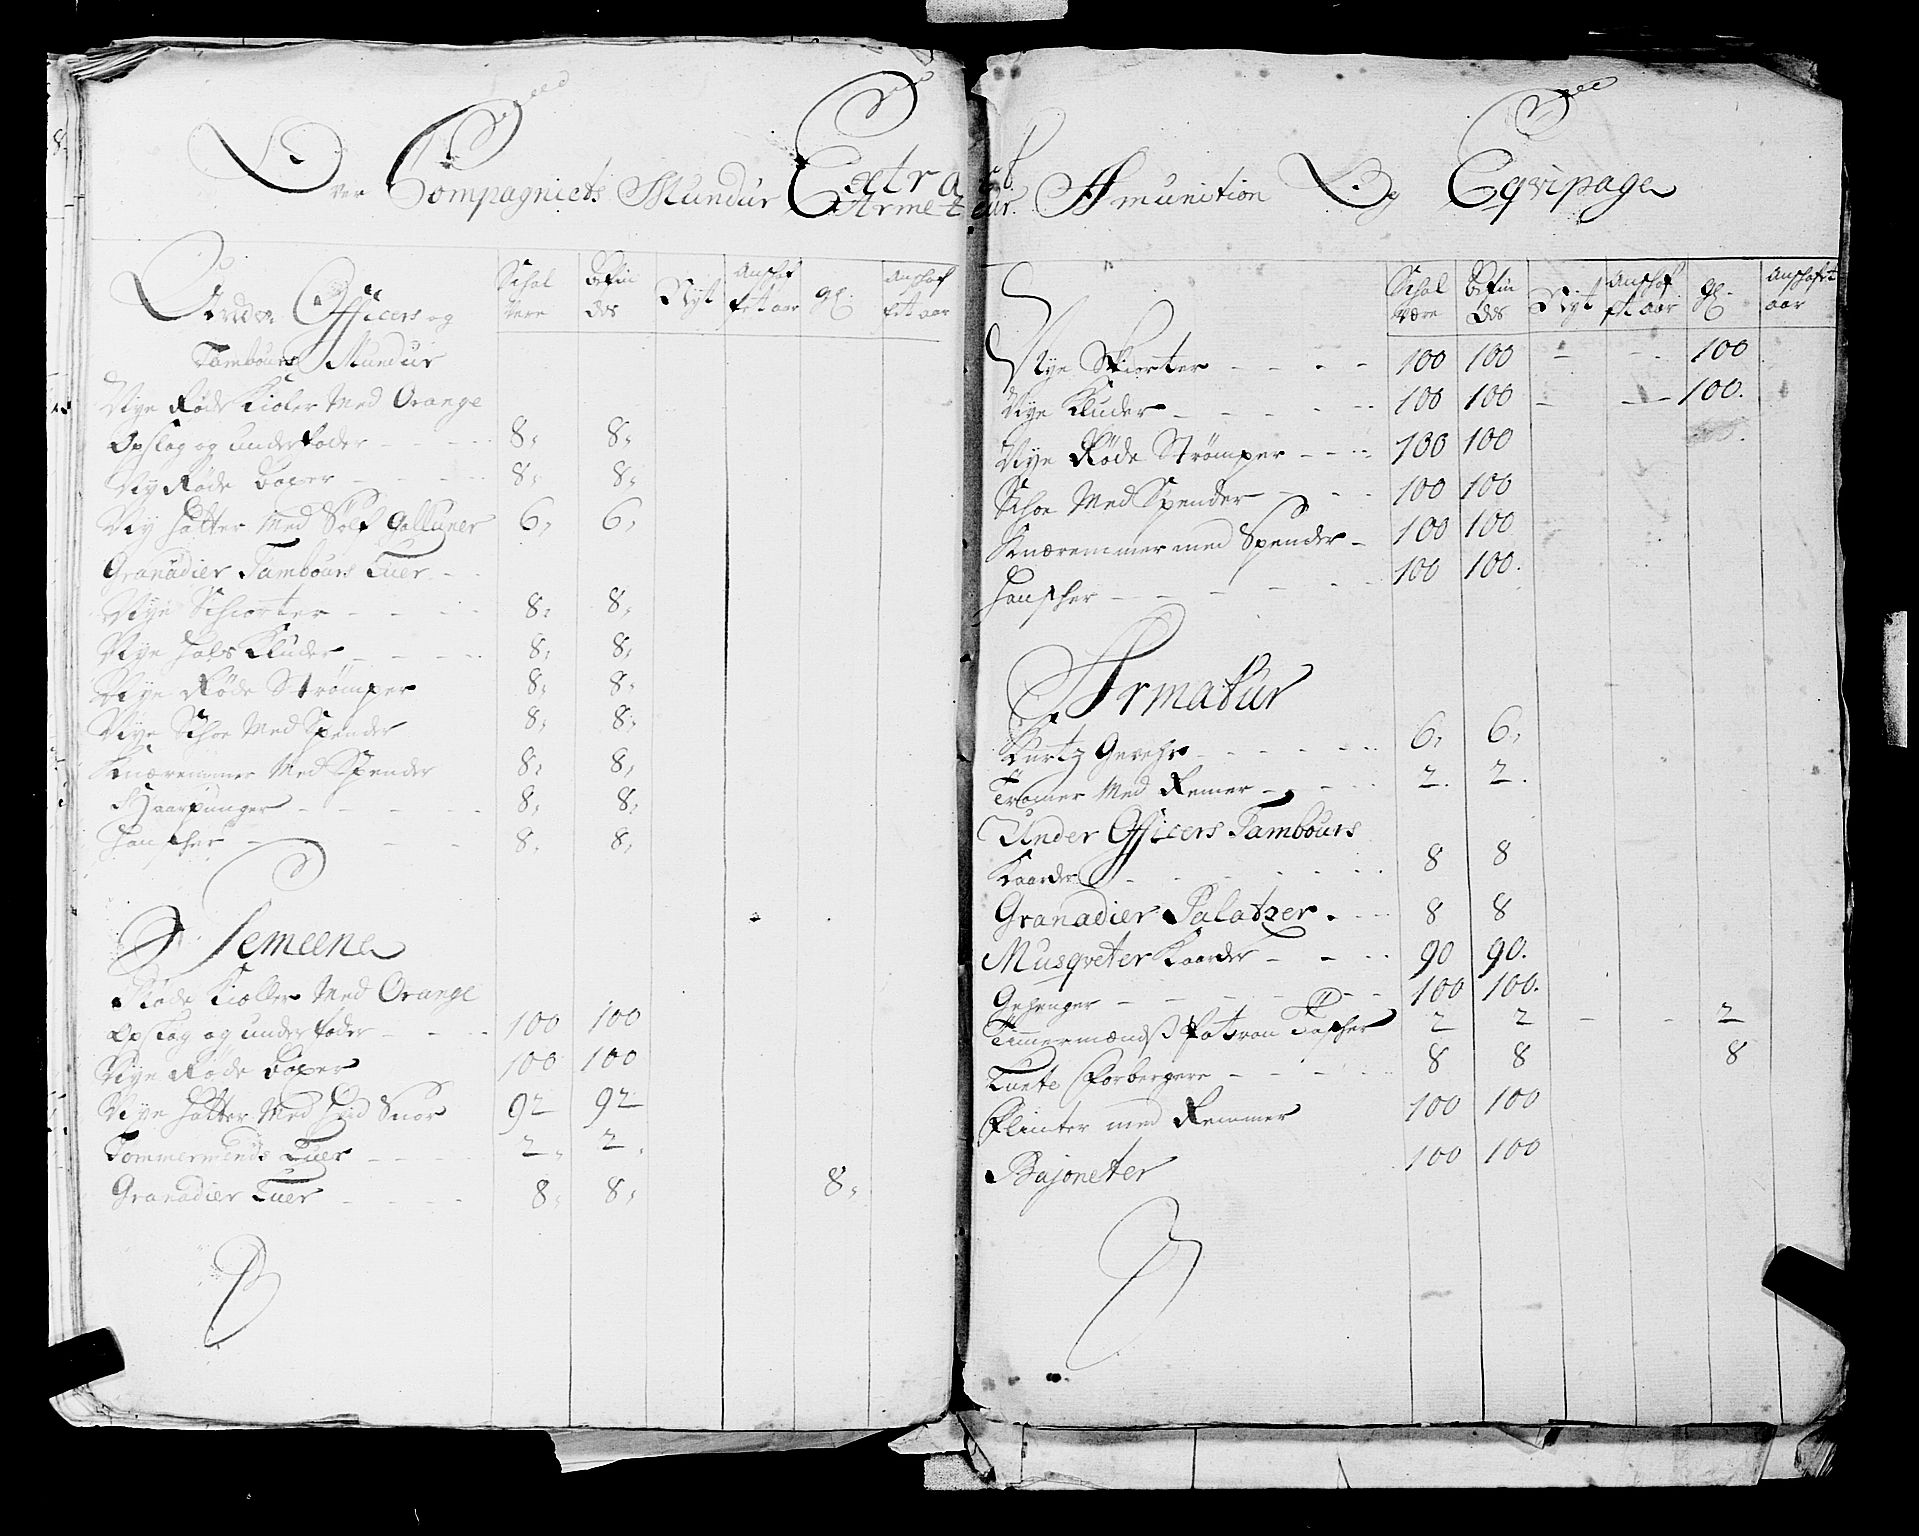 Extract
Over Compagniets Mundur Armetur. Amunition Og Eqvipage
Schal Være | Befindes | Nyt | Anshaffet aar | gl. | Anshaffet aar
Under Officers og
Tambours Mundur
Nye Røde Kioler Med Orange
Opslag og underfoder - - - 8, 8,
Ny Røde Boxer - - - 8, 8,
Ny Hatter Med Sølf Galluner 6, 6,
Granadier Tambours Luer - -
Nye Schiorter - - - 8, 8,
Nye Hals Kluder - - - 8, 8,
Nye Røde Strømper 8, 8,
Nye Schoe Med Spender 8, 8,
Knæremmer Med Spender 8, 8,
Haarpunger - - - 8, 8,
Hanscher - - - 8, 8,
Gemeene
Røde Kioller Med Orange
Opslag og underfoder - - - 100 100
Nye Røde Boxer 100 100
Nye Hatter Med Hvid Snor 92 92
Tommermends Luer - - - 2, 2,
Granadier Luer - - - 8, 8, 8,
Schal Være | Befindes | Nyt | Anshaffet aar | gl. | Anshaft aar
Nye Skiorter - - - - 100 100 - - 100
Nye Kluder - - - - 100 100 - - 100.
Nye Røde Strømper - - - 100 100
Schoe Med Spender - - - 100 100
Knæremmer med Spender - 100 100
Hanscher - - - - 100 100.
Armatur
Kurtz Gevehr - - - - 6, 6,
Tromer Med Remer - - - 2. 2.
Under Officers Tambours
Kaarder - - - - 8 8
Granadier Palatzer. - - - 8 8
Musqveter Kaarder - - - 90 90.
Gehenger - - - - 100 100.
Timermændß Patron Tascher 2 2 - - 2
Lunte Forbergere - - - - 8 8 8
Flinter med Remmer 100 100
Bajoneter 100 100